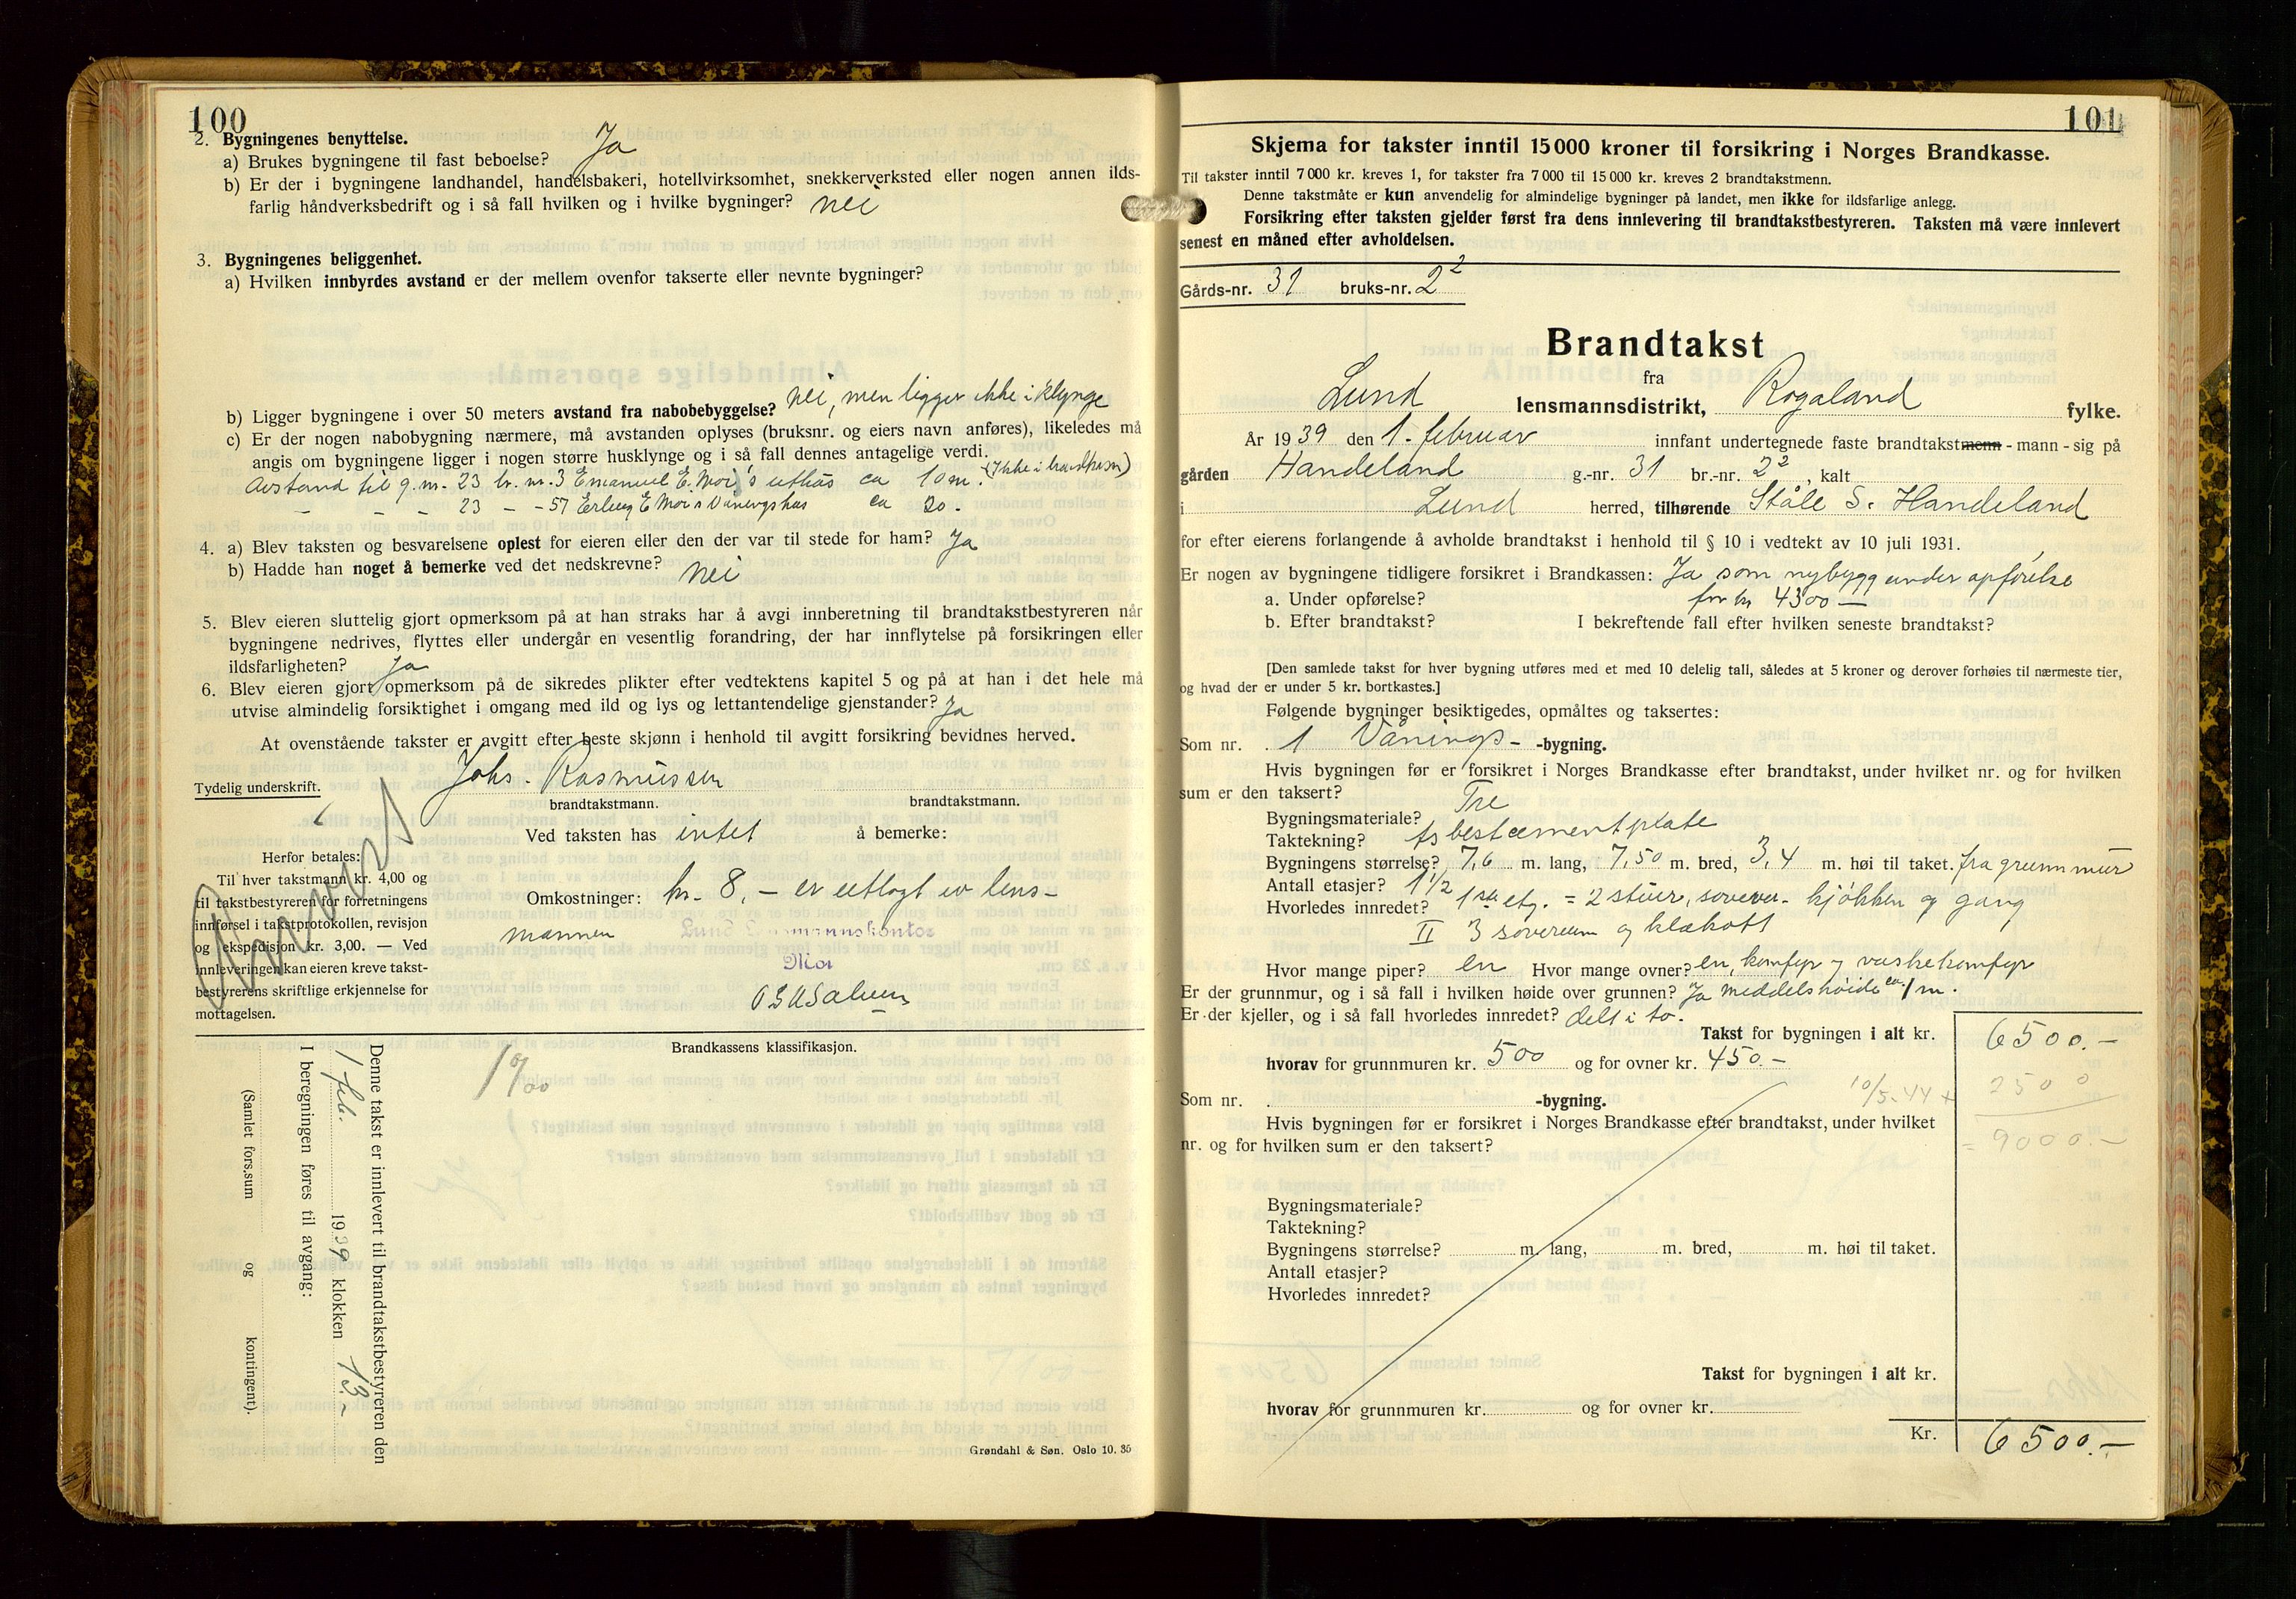 100
2. Bygningenes benyttelse.
a) Brukes bygningene til fast beboelse? Ja
b) Er der i bygningene landhandel, handelsbakeri, hotellvirksomhet, snekkerverksted eller nogen annen ilds-
farlig håndverksbedrift og i så fall hvilken og i hvilke bygninger? nei
3. Bygningenes beliggenhet.
a) Hvilken innbyrdes avstand er der mellem ovenfor takserte eller nevnte bygninger?
b) Ligger bygningene i over 50 meters avstand fra nabobebyggelse? nei, men ligger ikke i klynge
c) Er der nogen nabobygning nærmere, må avstanden oplyses (bruksnr. og eiers navn anføres), likeledes må
angis om bygningene ligger i nogen større husklynge og i så fall dennes antagelige verdi.
Avstand til g.nr. 23 br. nr. 3 Emanuel E. Moi's uthus ca 10 m. (Ikke i
— — — 23 — -57 Erling E Moi's Våningshus ca 20.
4. a) Blev taksten og besvarelsene oplest for eieren eller den der var til stede for ham? Ja
b) Hadde han noget å bemerke ved det nedskrevne? nei
5. Blev eieren sluttelig gjort opmerksom på at han straks har å avgi innberetning til brandtakstbestyreren når
bygningene nedrives, flyttes eller undergår en vesentlig forandring, der har innflytelse på forsikringen eller
ildsfarligheten? Ja
6. Blev eieren gjort opmerksom på de sikredes plikter efter vedtektens kapitel 5 og på at han i det hele må
utvise almindelig forsiktighet i omgang med ild og lys og lettantendelige gjenstander? Ja
At ovenstående takster er avgitt efter beste skjønn i henhold til avgitt forsikring bevidnes herved.
Johs. Rasmussen
Tydelig underskrift.
brandtakstmann. brandtakstmann.
Ved taksten has intet å bemerke:
Herfor betales:
Til hver takstmann kr. 4,00 og
til takstbestyreren for forretningens
innførsel i takstprotokollen, revisjon
og ekspedisjon kr. 3,00. — Ved
innleveringen kan eieren kreve takst-
bestyrerens skriftlige erkjennelse for
mottagelsen.
Omkostninger: kr. 8,- er utlagt av lens-
mannen Lund Lensmannskontor
Moi
Brandkassens klassifikasjon.
1 0/00
Denne takst er innlevert til brandtakstbestyreren den
1 feb. 1939 klokken 13.-
I beregningen føres til avgang:
(Samlet fors.sum og kontingent).
Grøndahl & Søn. Oslo 10. 35
101
Skjema for takster inntil 15 000 kroner til forsikring i Norges Brandkasse.
Til takster inntil 7 000 kr. kreves 1, for takster fra 7 000 til 15 000 kr. kreves 2 brandtakstmenn.
Denne takstmåte er kun anvendelig for almindelige bygninger på landet, men ikke for ildsfarlige anlegg.
Forsikring efter taksten gjelder først fra dens innlevering til brandtakstbestyreren. Taksten må være innlevert
senest en måned efter avholdelsen.
Gårds-nr. 31 bruks-nr. 2²
Brandtakst
fra
Lund lensmannsdistrikt, Rogaland fylke.
År 1939 den 1. februar innfant undertegnede faste brandtakstmenn - mann - sig på
gården Handeland g.-nr. 31 br.-nr. 2², kalt
i Lund herred, tilhørende Ståle S. Handeland
for efter eierens forlangende å avholde brandtakst i henhold til § 10 i vedtekt av 10 juli 1931.
Er nogen av bygningene tidligere forsikret i Brandkassen: Ja som nybygg under opførelse
a. Under opførelse? for kr 4300 —
b. Efter brandtakst? I bekreftende fall efter hvilken seneste brandtakst?
[Den samlede takst for hver bygning utføres med et med 10 delelig tall, således at 5 kroner og derover forhøies til nærmeste tier,
og hvad der er under 5 kr. bortkastes.]
Følgende bygninger besiktigedes, opmåltes og taksertes:
Som nr. 1 Vånings- -bygning.
Hvis bygningen før er forsikret i Norges Brandkasse efter brandtakst, under hvilket nr. og for hvilken
sum er den taksert?
Bygningsmateriale? Tre
Taktekning? Asbestcementplate
Bygningens størrelse? 7,6 m. lang, 7,50 m. bred, 3,4 m. høi til taket. fra grunnmur
Antall etasjer? 1 1/2
Hvorledes innredet? 1ste etg. = 2 stuer, soverum kjøkken og gang
II 3 soverum og klækott
Hvor mange piper? en Hvor mange ovner? en, komfyr og vaskekomfyr
Er der grunnmur, og i så fall i hvilken høide over grunnen? Ja meddelshøide ca 1 m.
Er der kjeller, og i så fall hvorledes innredet? delt i to.
Takst for bygningen i alt kr. 6500.-
hvorav for grunnmuren kr. 500 og for ovner kr. 450.-
10/5-44 + 2500
= 9000.-
Som nr. -bygning.
Hvis bygningen før er forsikret i Norges Brandkasse efter brandtakst, under hvilket
nr. og for hvilken sum er den taksert?
Bygningsmateriale?
Taktekning?
Bygningens størrelse? m. lang, m. bred, m. høi til taket.
Antall etasjer?
Hvorledes innredet?
Takst for bygningen i alt kr.
hvorav for grunnmuren kr. og for ovner kr.
Kr. 6500.-